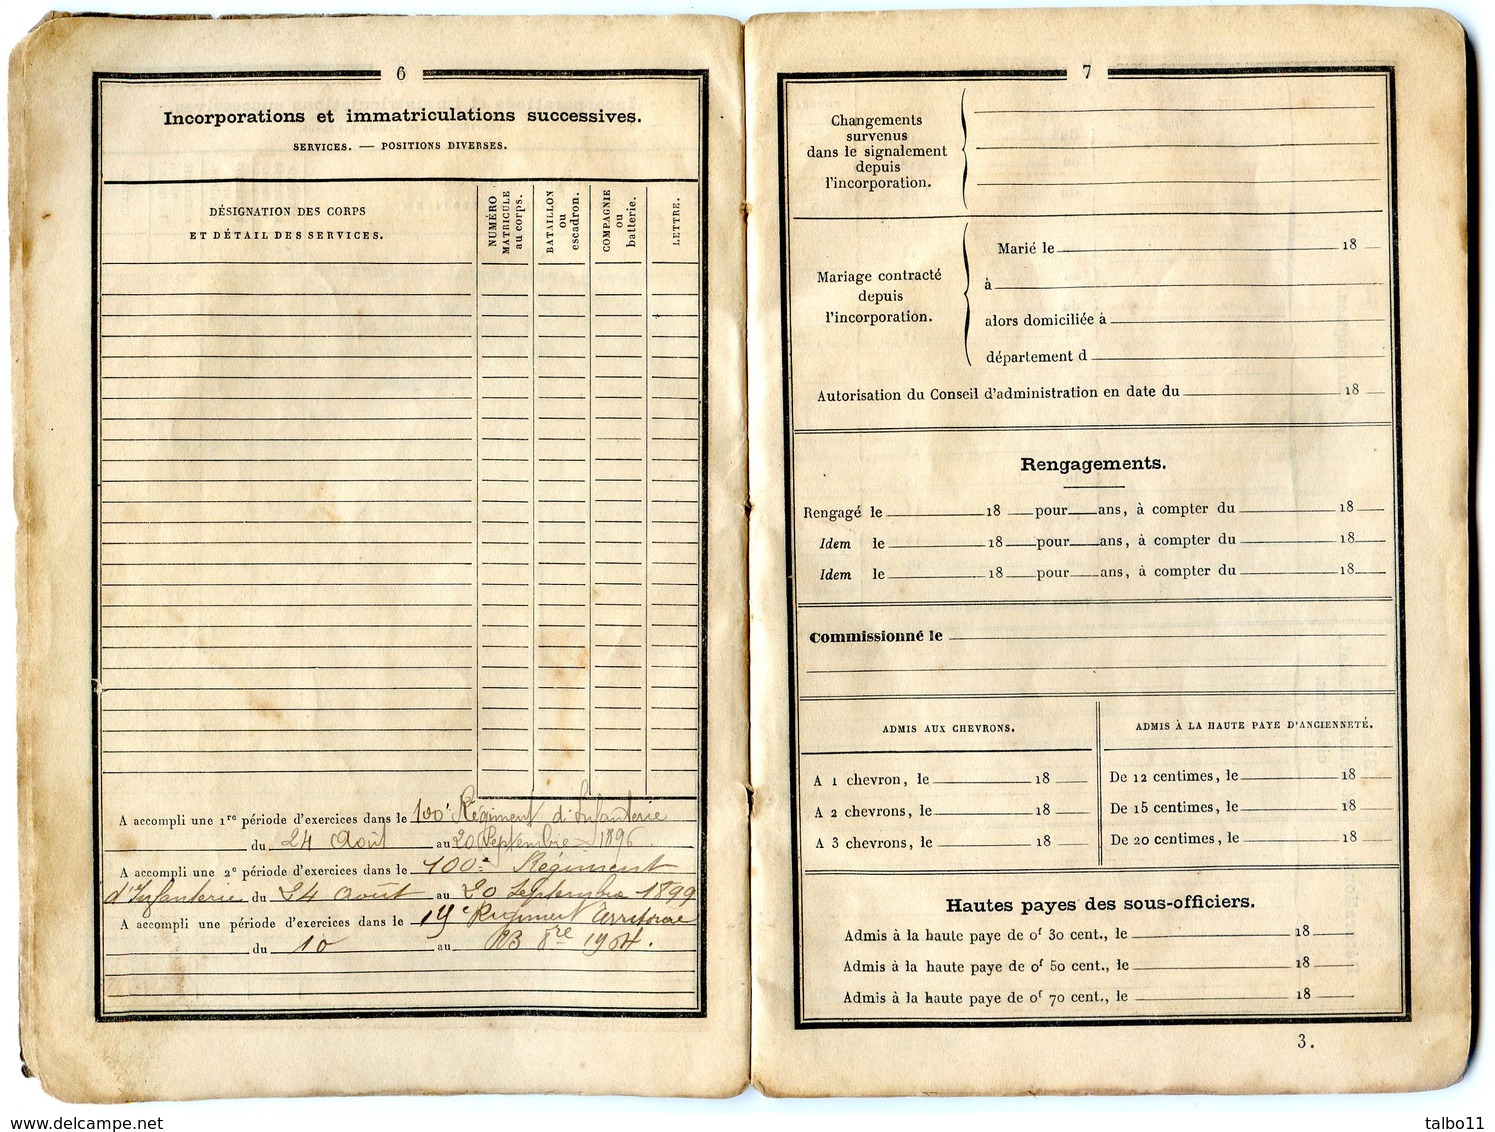 6
Incorporations et immatriculations successives.
SERVICES. — POSITIONS DIVERSES.
DÉSIGNATION DES CORPS
ET DÉTAIL DES SERVICES.
NUMÉRO
MATRICULE
au corps.
BATAILLON
ou
escadron.
COMPAGNIE
ou
batterie.
LETTRE.
A accompli une 1re période d'exercices dans le 100e Régiment d'Infanterie
du 24 Août au 20 Septembre 1896
A accompli une 2e période d'exercices dans le 100e Régiment
d'Infanterie du 24 Août au 20 Septembre 1899
A accompli une période d'exercices dans le Régiment Territorial
du 10 au 8bre 1904.
7
Changements
survenus
dans le signalement
depuis
l'incorporation.
Mariage contracté
depuis
l'incorporation.
Marié le 18
à
alors domiciliée à
département d
Autorisation du Conseil d'administration en date du 18
Rengagements.
Rengagé le 18 pour ans, à compter du 18
Idem le 18 pour ans, à compter du 18
Idem le 18 pour ans, à compter du 18
Commissionné le
ADMIS AUX CHEVRONS.
A 1 chevron, le 18
A 2 chevrons, le 18
A 3 chevrons, le 18
ADMIS À LA HAUTE PAYE D'ANCIENNETÉ.
De 12 centimes, le 18
De 15 centimes, le 18
De 20 centimes, le 18
Hautes payes des sous-officiers.
Admis à la haute paye de 0f 30 cent., le 18
Admis à la haute paye de 0f 50 cent., le 18
Admis à la haute paye de 0f 70 cent., le 18
3.
www.delcampe.net
talbo11